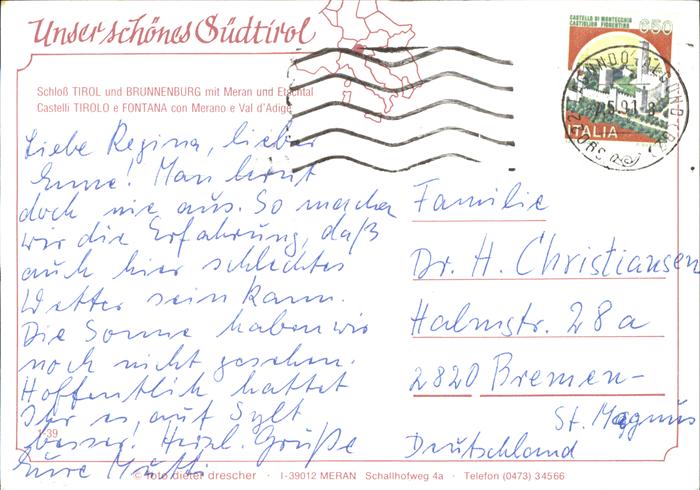 Unser schönes Südtirol
Schloß TIROL und BRUNNENBURG mit Meran und Etschtal
Castelli TIROLO e FONTANA con Merano e Val d'Adige
CASTELLO DI MONTECCHIO
CASTIGLION FIORENTINO
650
ITALIA
Liebe Regina, lieber
Enne! Man lernt
doch nie aus. So machen
wir die Erfahrung, daß
auch hier schlechtes
Wetter sein kann.
Die Sonne haben wir
noch nicht gesehen.
Hoffentlich hattet
Ihr es auf Sylt
besser. Herzl. Grüße
Eure Mutti
Familie
Dr. H. Christiansen
Halmstr. 28a
2820 Bremen-
St. Magnus
Deutschland
© foto dieter drescher · I-39012 MERAN Schallhofweg 4a · Telefon (0473) 34566